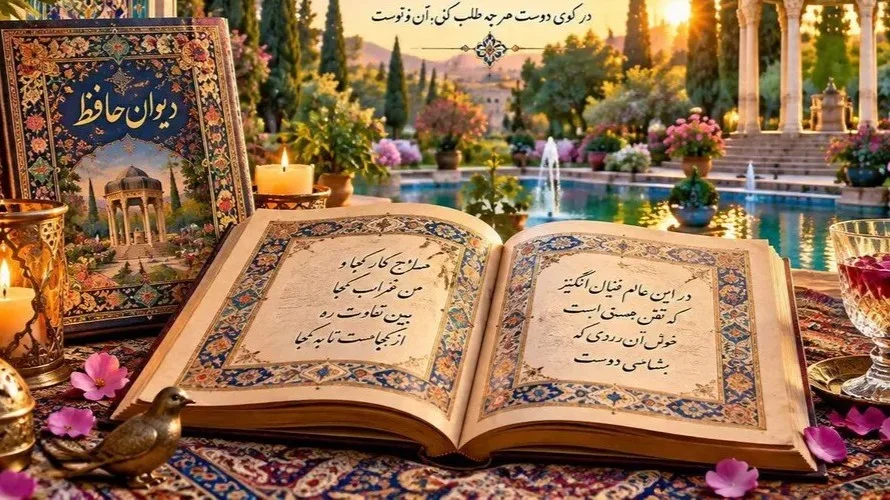 در کوی دوست هر چه طلب کنی: آن ؤتوست
دیوان حافظ
صلاح کار کجا و
من خراب کجا
بین تفاوت ره
از کجاست تا به کجا
در این عالم فنیان انگیز
که نقن جستی است
خوش آن رردی که
بشناسی دوست